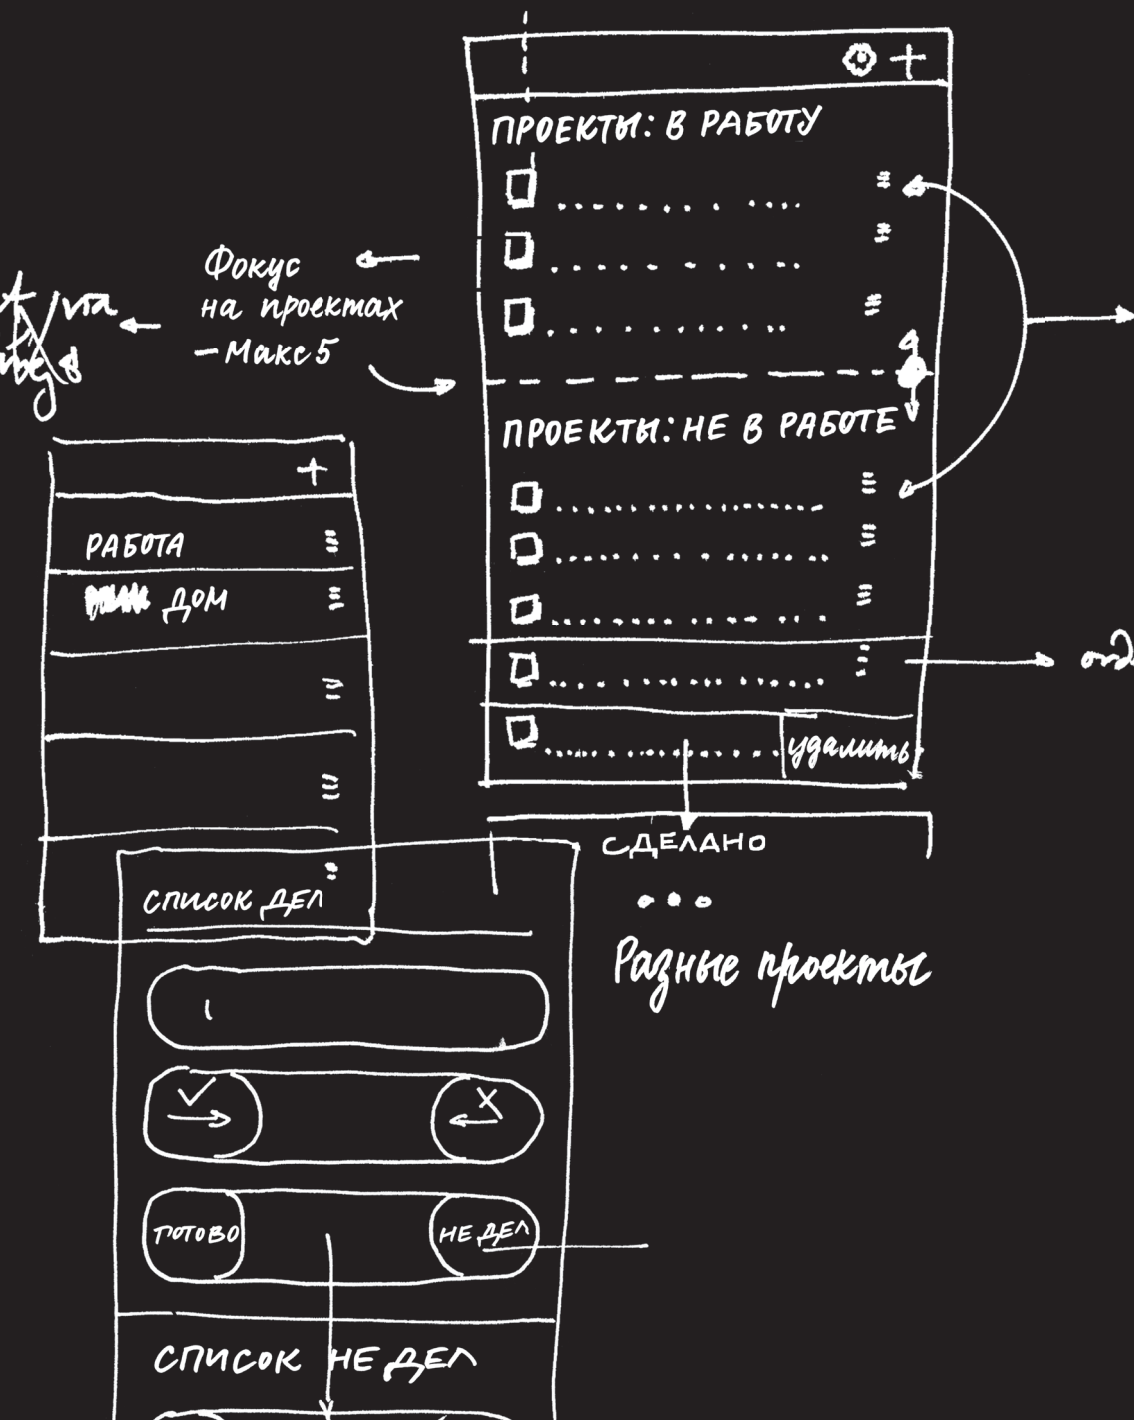 ПРОЕКТЫ: В РАБОТУ
Фокус
на проектах
– Макс 5
via
ПРОЕКТЫ: НЕ В РАБОТЕ
удалить
РАБОТА
ДОМ
СДЕЛАНО
Разные проекты
СПИСОК ДЕЛ
ГОТОВО
НЕ ДЕЛ
СПИСОК НЕ ДЕЛ